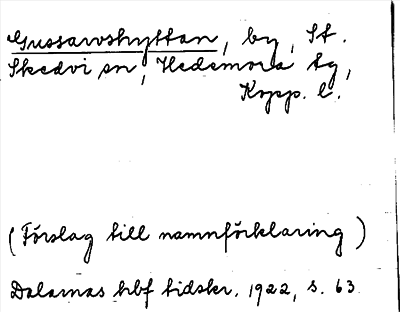 Gussarvshyttan, by, St.
Skedvi sn, Hedemora tg,
Kopp. l.
(Förslag till namnförklaring)
Dalarnas hbf tidskr. 1922, s. 63